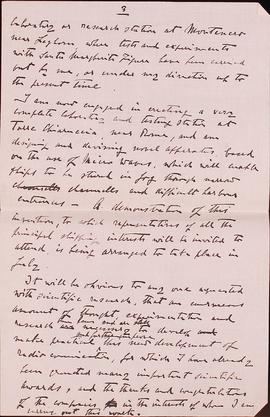 3
laboratory or research station at Montenero
near Leghorn, where tests and experiments
with Santa Margherita Ligure have been carried
out by me, or under my direction up to
the present time.
I am now engaged in erecting a very
complete laboratory and testing station at
Torre Chiaruccia, near Rome, and am
designing and devising novel apparatus, based
on the use of Micro Waves, which will enable
ships to be steered in fog through narrow
channels and difficult harbour
entrances — A demonstration of this
invention, to which representatives of all the
principal shipping interests will be invited to
attend is being arranged to take place in
July.
It will be obvious to any one acquainted
with scientific research, that an enormous
amount of thought, experimentation and
research necessary to develop and
make practical this new development of
radio communication, for which I have already
been granted many important scientific
awards, and the thanks and congratulations
of the companies in the interests of whom I am
carrying out this work.